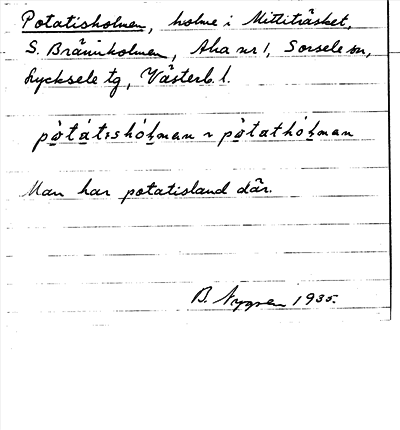 Potatisholmen, holme i Mittiträsket,
S. Brännholmen, Aha nr 1, Sorsele sn,
Lycksele tg, Västerb. l.
pòtátishólman ~ pòtathólman
Man har potatisland där.
B. Nygren 1935.